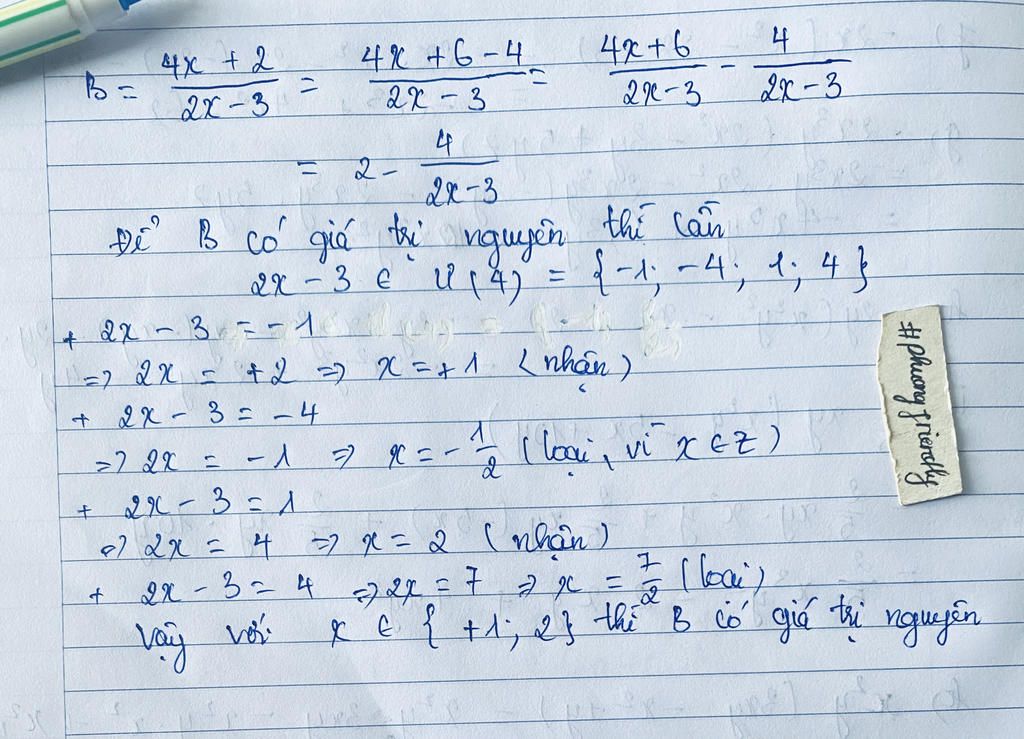 B = \frac{4x + 2}{2x - 3} = \frac{4x + 6 - 4}{2x - 3} = \frac{4x + 6}{2x - 3} - \frac{4}{2x - 3}
= 2 - \frac{4}{2x - 3}
Để B có giá trị nguyên thì cần
2x - 3 ∈ Ư(4) = {-1; -4; 1; 4}
+ 2x - 3 = -1
=> 2x = +2 => x = +1 (nhận)
+ 2x - 3 = -4
=> 2x = -1 => x = -\frac{1}{2} (loại, vì x ∈ Z)
+ 2x - 3 = 1
=> 2x = 4 => x = 2 (nhận)
+ 2x - 3 = 4 => 2x = 7 => x = \frac{7}{2} (loại)
Vậy với x ∈ {+1; 2} thì B có giá trị nguyên
#phuongfriendly